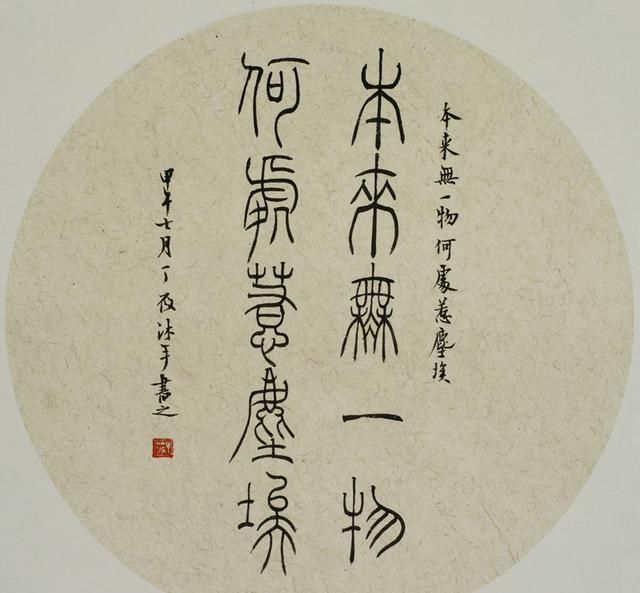 本來無一物何處惹塵埃
本來無一物
何處惹塵埃
甲午七月丁夜沐手書之